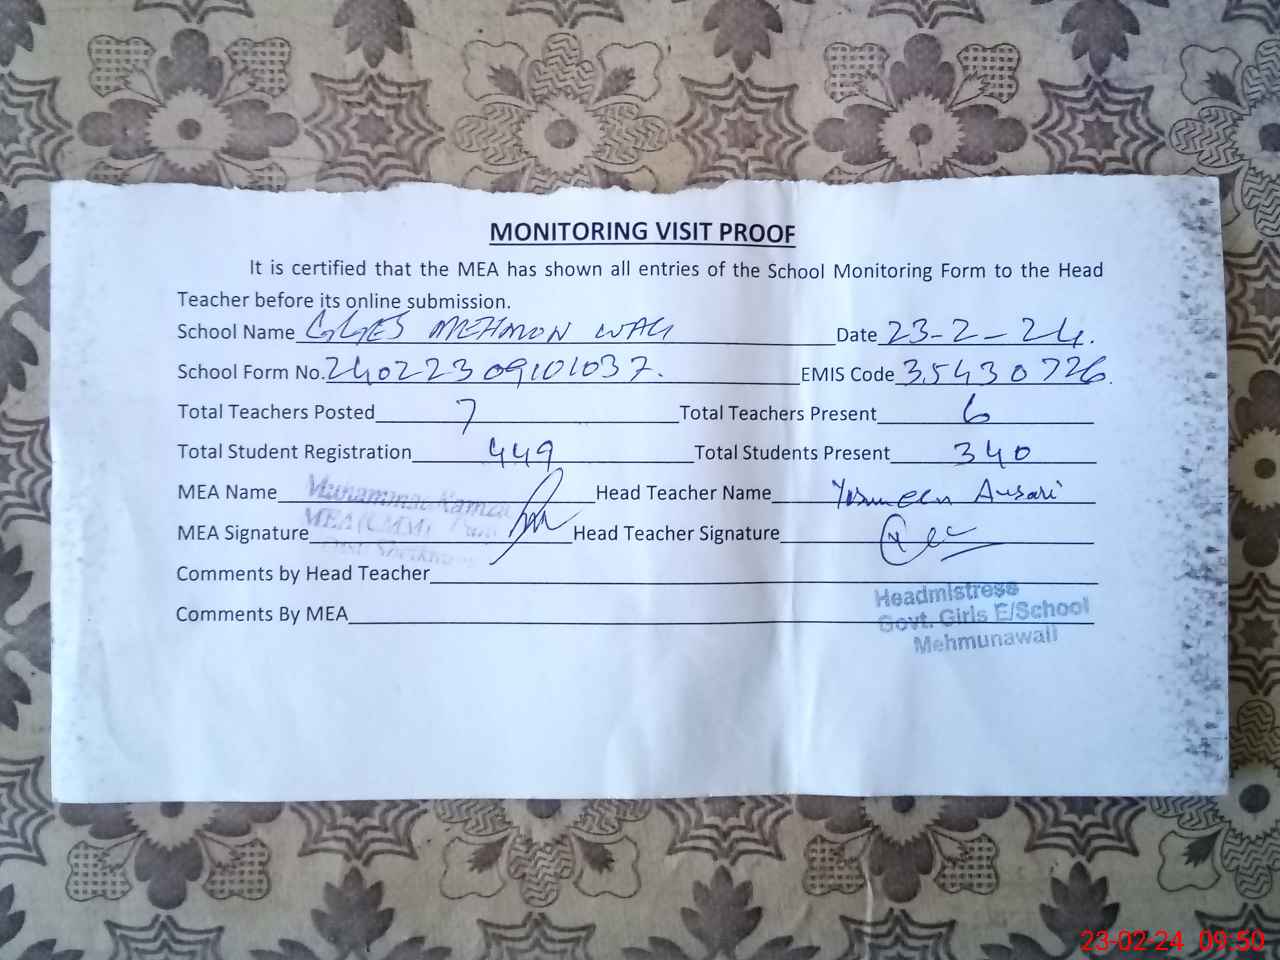 MONITORING VISIT PROOF
It is certified that the MEA has shown all entries of the School Monitoring Form to the Head
Teacher before its online submission.
School Name GGES MEHMON WALI Date 23-2-24.
School Form No. 24022309101037. EMIS Code 35430726
Total Teachers Posted 7 Total Teachers Present 6
Total Student Registration 449 Total Students Present 340
MEA Name Muhammad Hamza Head Teacher Name Yasmeen Ansari
MEA Signature MEA (CMM) Head Teacher Signature
Comments by Head Teacher
Headmistress
Comments By MEA Govt. Girls E/School
Mehmunawali
23-02-24 09:50